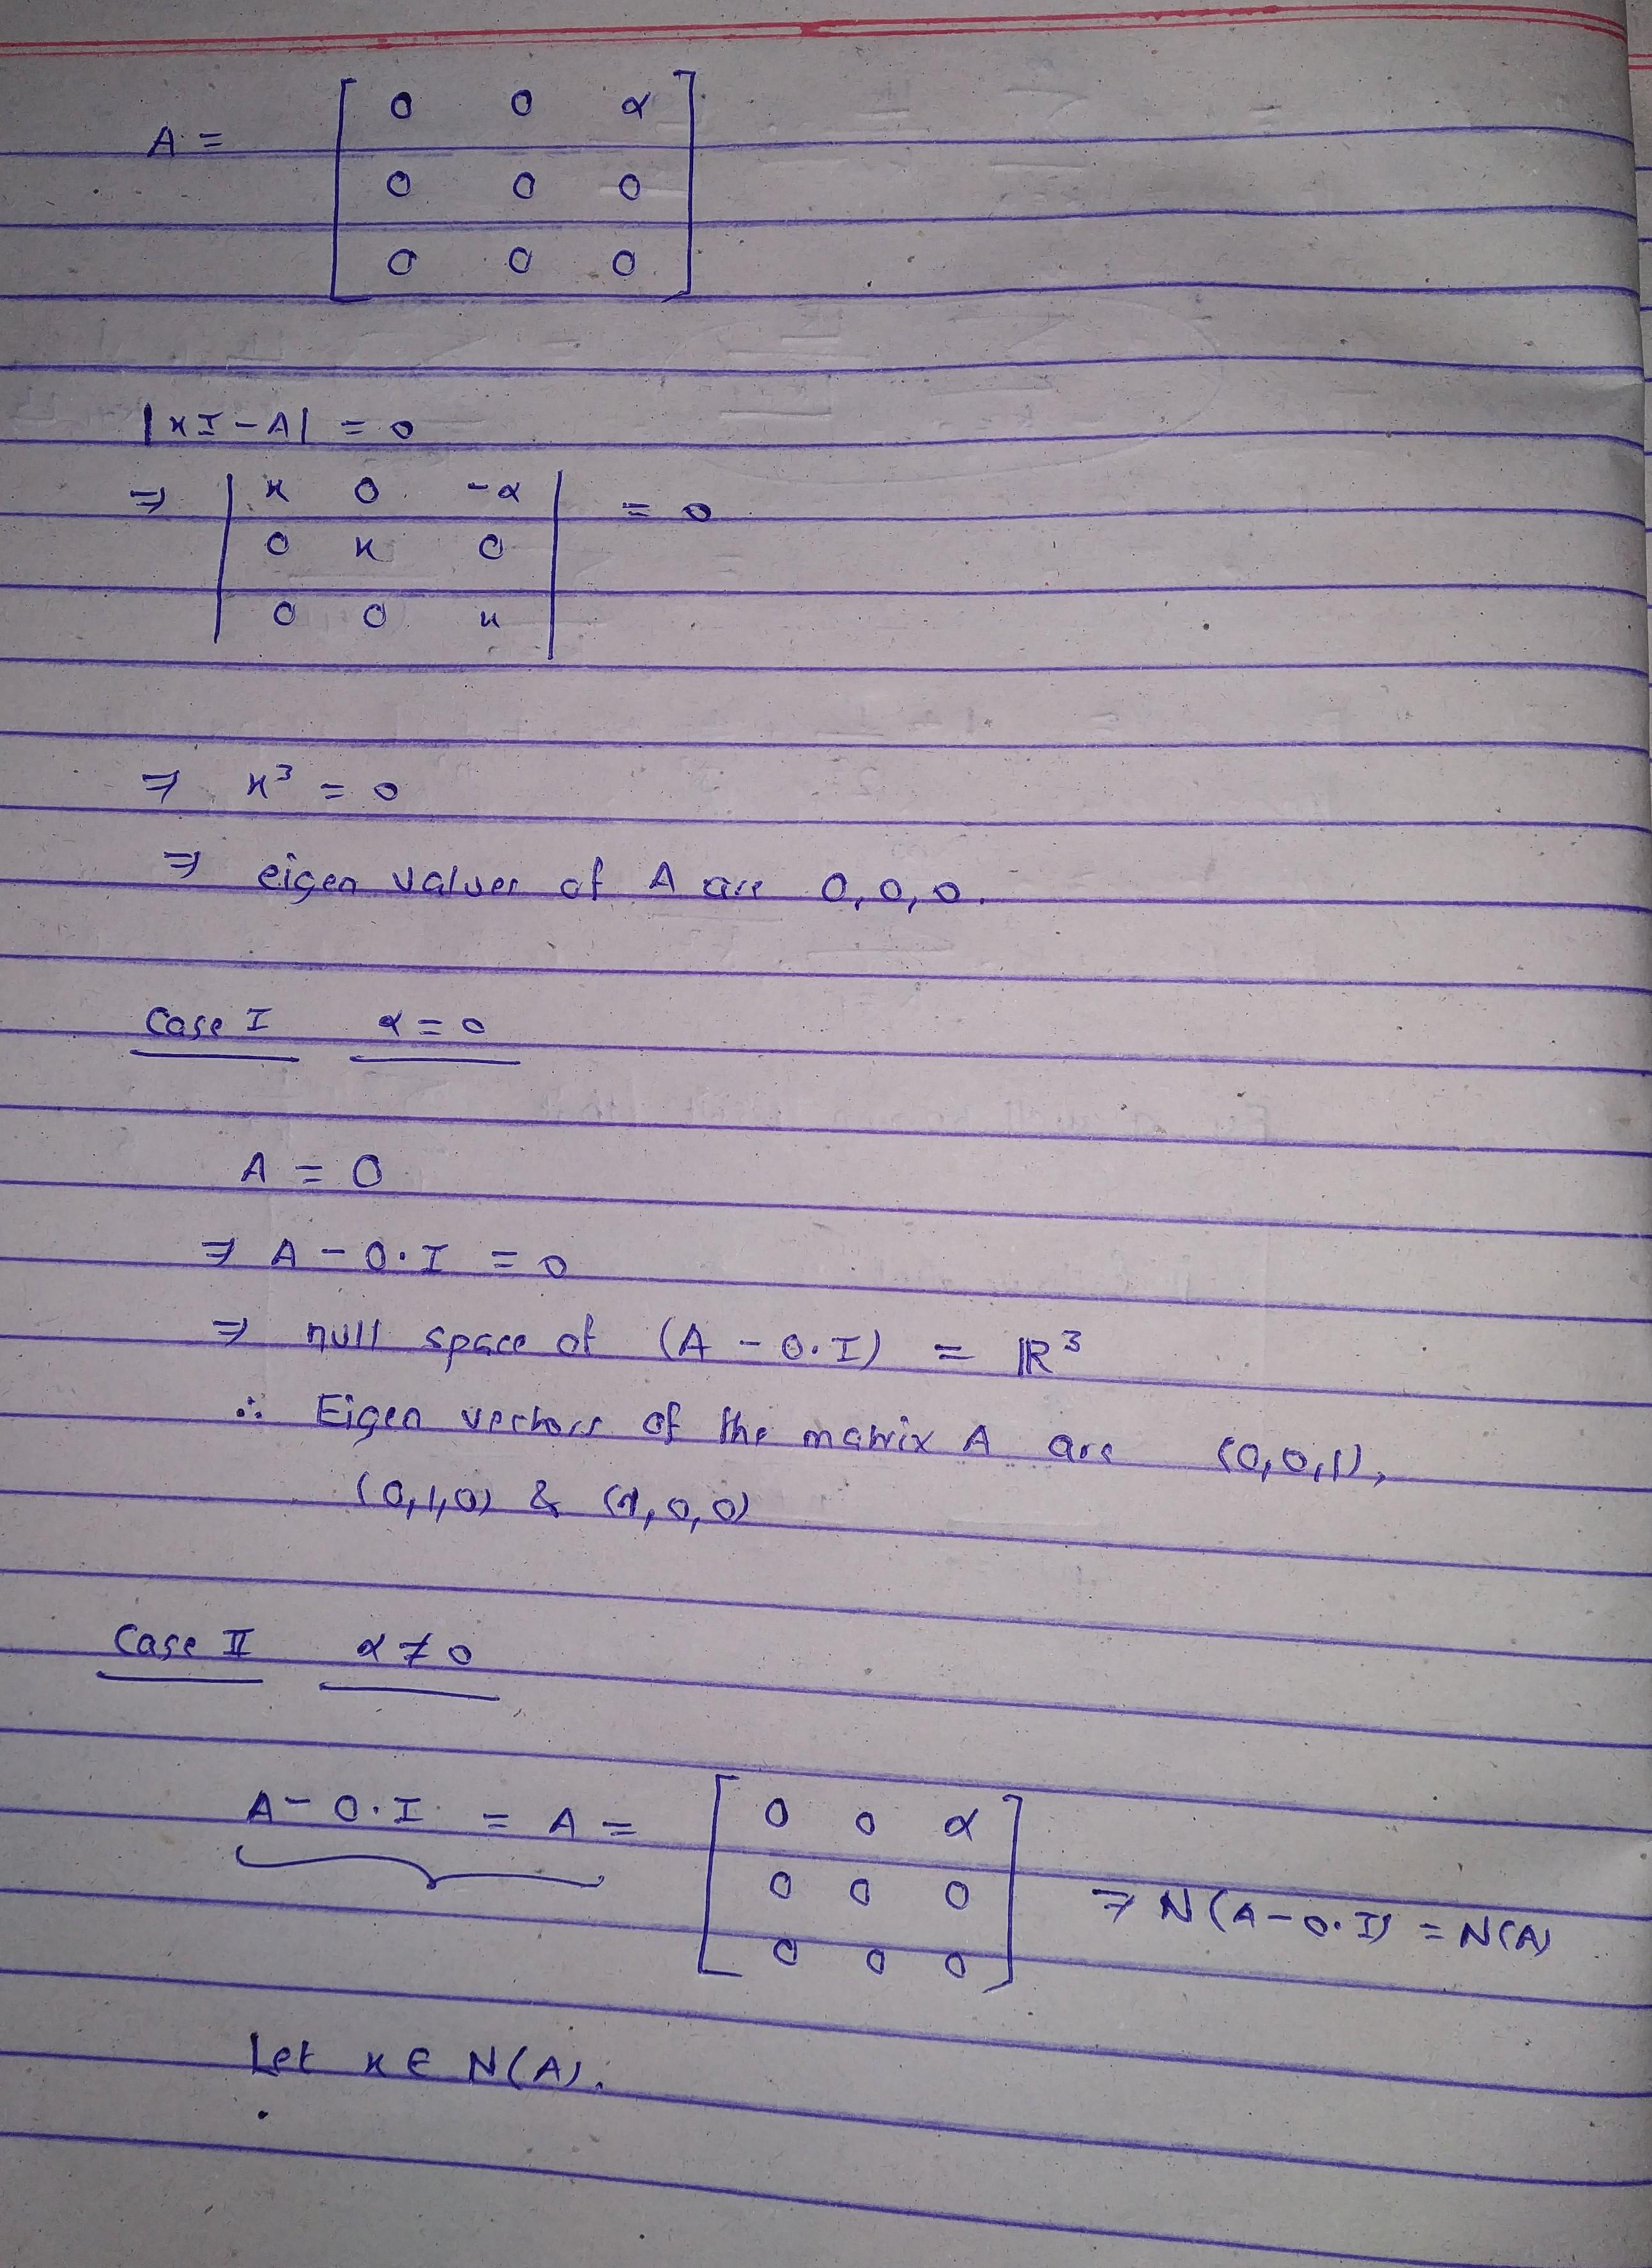 A = [ 0 0 α
0 0 0
0 0 0 ]
|xI - A| = 0
⇒ | x 0 -α | = 0
0 x 0
0 0 x
⇒ x³ = 0
⇒ eigen values of A are 0, 0, 0.
Case I α = 0
A = 0
⇒ A - 0·I = 0
⇒ null space of (A - 0·I) = ℝ³
∴ Eigen vectors of the matrix A are (0,0,1),
(0,1,0) & (1,0,0)
Case II α ≠ 0
A - 0·I = A = [ 0 0 α
0 0 0 ⇒ N(A - 0·I) = N(A)
0 0 0 ]
Let x ∈ N(A).